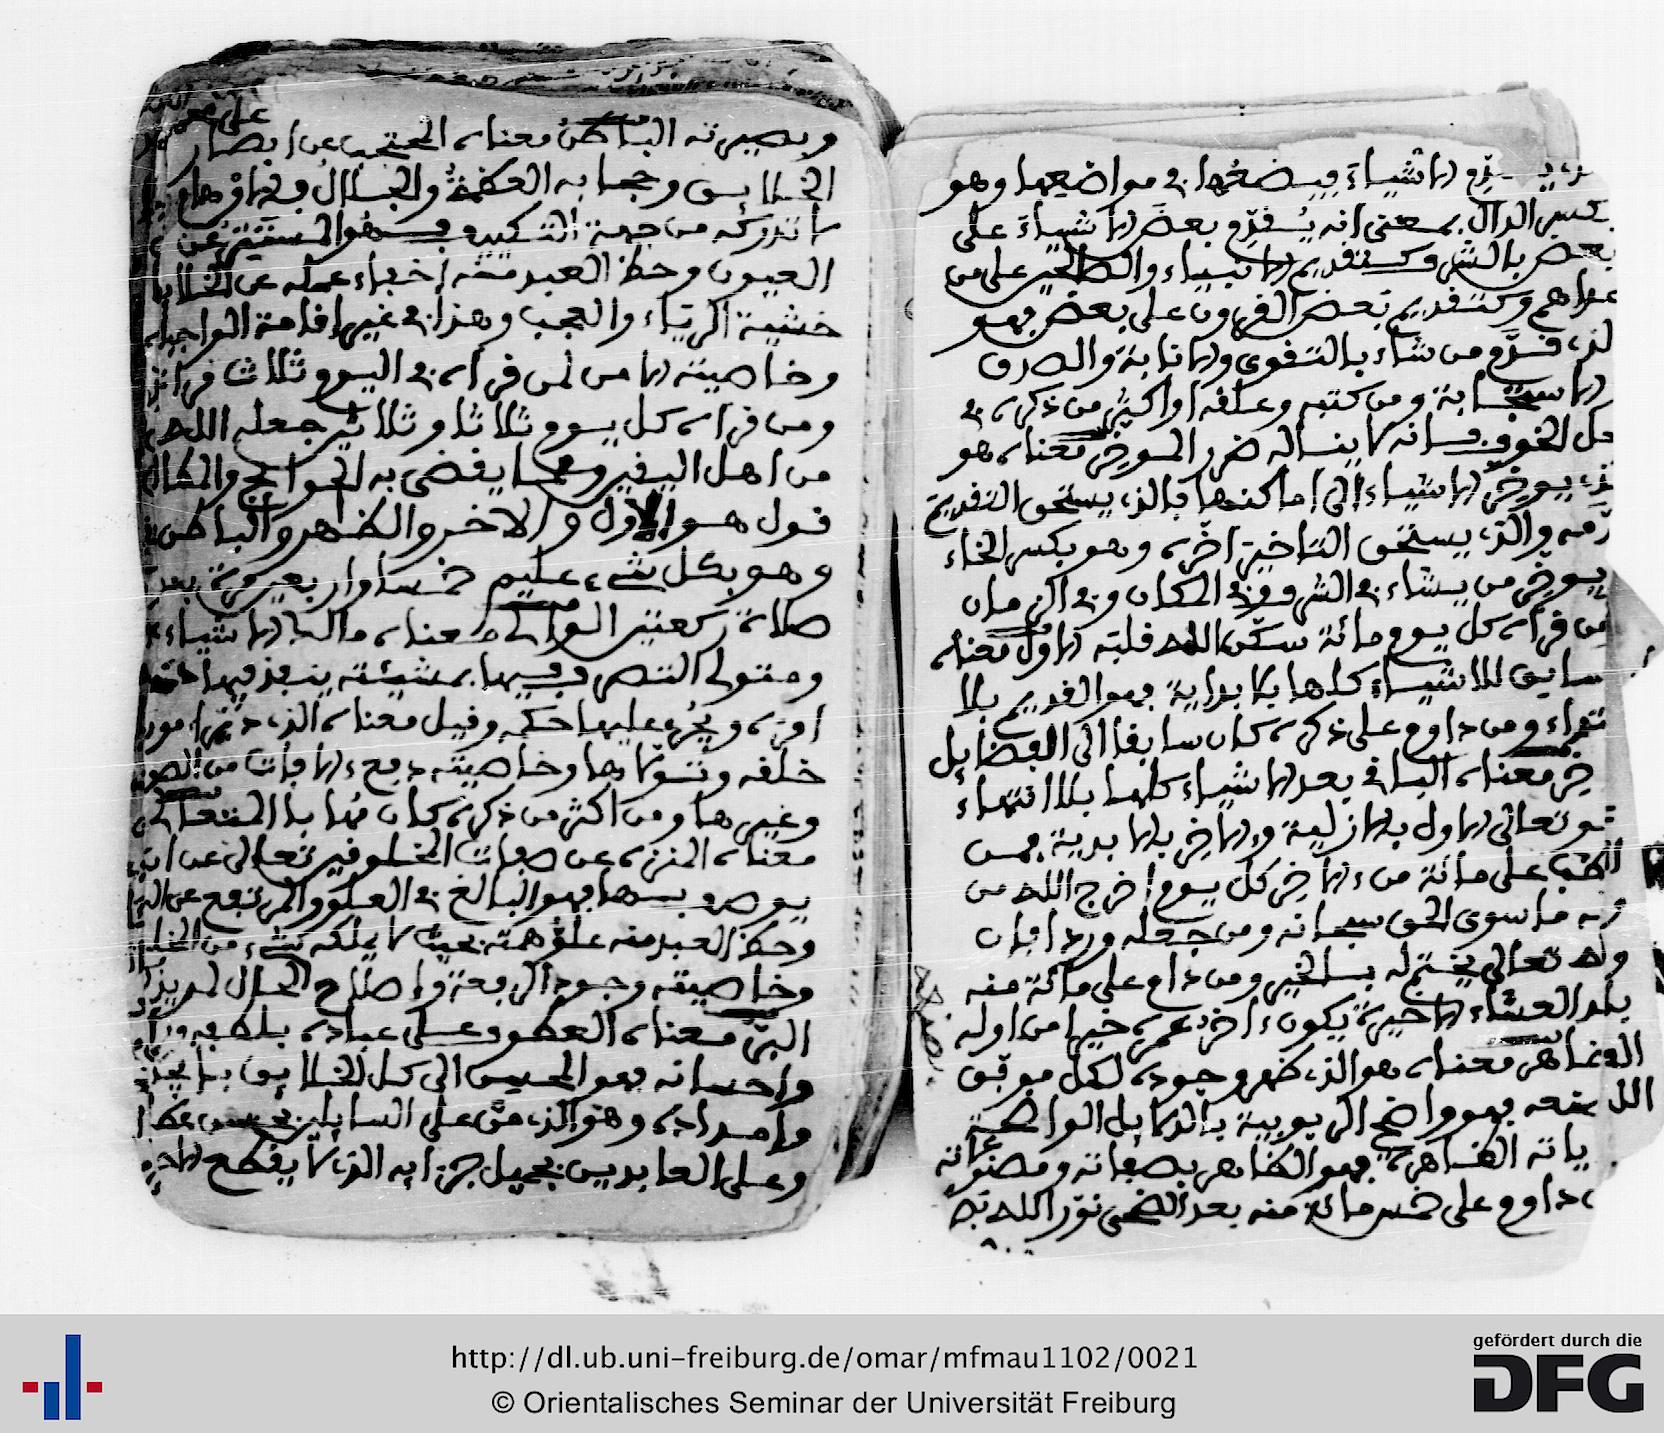 الاشياء فيضعها في مواضعها وهو
بكسر الدال بمعنى انه يُقدِّم بعض الاشياءَ على
بعض بالشرف كتقديم الانبياء والصالحين على من
عداهم وكتقديم بعض القرون على بعض فهو
الذي قدَّم من شاء بالتقوى والانابة والصدق
الاستجابة ومن كتبه وعلقه او اكثر من ذكره في
محل الخوف فانه لا يناله ضرر الموخر معناه هو
الذي يوخر الاشياء الى اماكنها فالذي يستحق التقديم
قدمه والذي يستحق التاخير اخّره وهو بكسر الخاء
يوخر من يشاء في الشرف وفي المكان وفي الزمان
من قراه كل يوم مائة سكّن الله قلبه الاول معناه
سابق للاشياء كلها بلا بداية فهو القديم بلا
ابتداء ومن داوم على ذكره كان سابقا الى الفضايل
الاخر معناه الباقي بعد الاشياء كلها بلا انتهاء
فهو تعالى الاول بالازلية والاخر بالابدية فمن
واظب على مائة من الاخر كل يوم اخرج الله من
قلبه ما سوى الحق سبحانه ومن جعله وردا فان
الله تعالى يختم له بالخير ومن دام على مائة منه
بعد العشاء الاخيرة يكون اخر عمره خيرا من اوله
الظاهر معناه هو الذي ظهر وجوده لكل موفق
الله فهو واضح الربوبية بالدلايل الواضحة
باياته الظاهرة فهو الظاهر بصفاته ومصنوعاته
من داوم على خمس مائة منه بعد الضحى نوّر الله
وبصيرته الباطن معناه المحتجب عن ابصار
الخلايق وحجابه العظمة والجلال
لا تدركه من جهة التكييف فهو المستتر عن
العيون وحظ العبد منه اخفاء عمله عن الخلايق
خشية الرياء والعجب وهذا في غير اقامة الواجبات
وخاصيته الامن لمن قراه في اليوم ثلاث
ومن قراه كل يوم ثلاثا وثلاثين جعله الله
من اهل اليقين ومما يقضى به الحوائج
قول هو الاول والاخر والظهر والباطن
وهو بكل شيء عليم خمسا واربعين مرة بعد
صلاة ركعتين الوالي معناه مالك الاشياء
ومتولى التصرف فيها بمشيئته ينفذ فيها
امره ويجري عليها حكمه وقيل معناه الذي دبر امور
خلقه وتولاها وخاصيته دفع الافات من
وغيرها ومن اكثر من ذكره كان مُهابا المتعالي
معناه المنزه عن صفات المخلوقين تعالى عن ان
يوصف بها فهو البالغ في العلو والمرتفع عن
وحظ العبد منه علو همته بحيث لا يملكه شيء من
وخاصيته وجود الرفعة واصلاح الحال
البرّ معناه العطوف على عباده بلطفه
واحسانه فهو المحسن الى كل الخلايق
وامداده وهو الذي منّ على السايلين بحسن
وعلى العابدين بجميل جزايه الذي لا يقطع
http://dl.ub.uni-freiburg.de/omar/mfmau1102/0021
© Orientalisches Seminar der Universität Freiburg
gefördert durch die
DFG